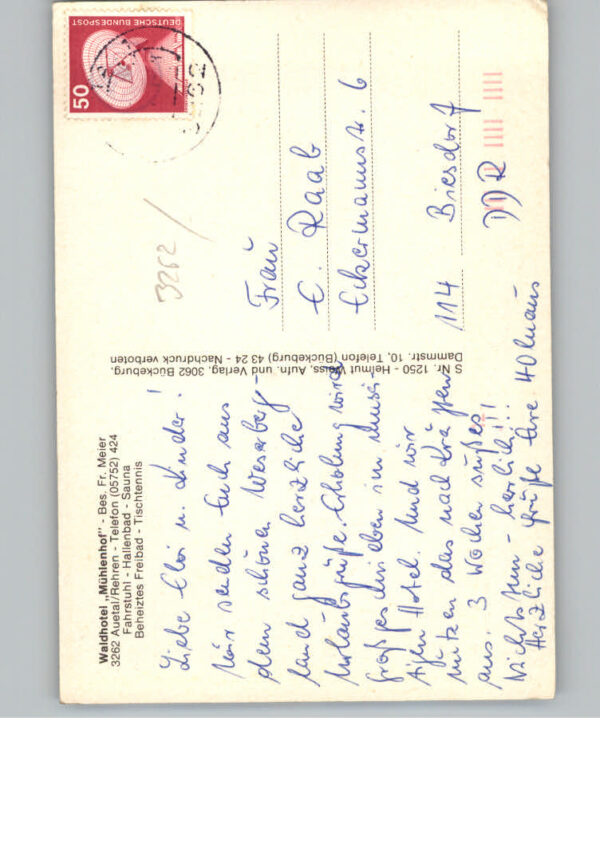 Waldhotel „Mühlenhof" - Bes. Fr. Meier
3262 Auetal/Rehren - Telefon (05752) 424
Fahrstuhl - Hallenbad - Sauna
Beheiztes Freibad - Tischtennis
Liebe Elvi u. Kinder!
Wir senden Euch aus
dem schönen Weserberg-
land ganz herzliche
Urlaubsgrüße. Erholung wird
großgeschrieben im
Hotel. Und wir
nutzen das nach Kräften
aus. 3 Wochen süßes
Nichtstun - herrlich!!!
Herzliche Grüße Eure
S Nr. 1250 - Helmut Weiss, Aufn. und Verlag, 3062 Bückeburg,
Dammstr. 10, Telefon (Bückeburg) 43 24 - Nachdruck verboten
3262 /
DEUTSCHE BUNDESPOST
50
Frau
E. Raab
Eckermannstr. 6
114 Biesdorf
DDR